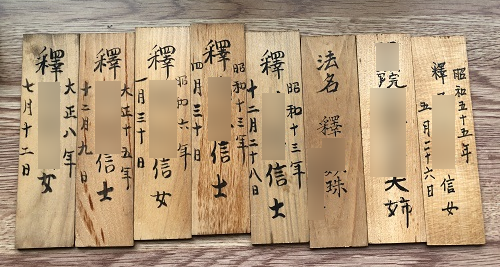 昭和五十五年
釋 信女
五月二十六日
院 大姉
法名 釋
昭和十三年
釋 信士
十二月二十八日
昭和十三年
釋 信士
四月三十日
昭和六年
釋 信女
一月三十日
大正十五年
釋 信士
十二月九日
大正八年
釋 女
七月十二日